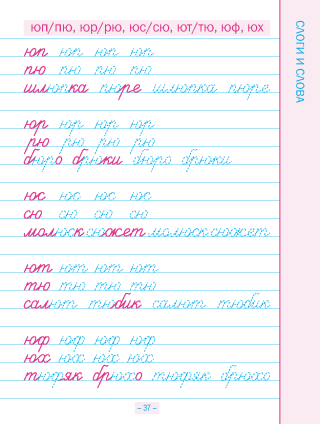 юп/пю, юр/рю, юс/сю, ют/тю, юф, юх
СЛОГИ И СЛОВА
юп юп юп юп
пю пю пю пю
шлюпка пюре шлюпка пюре
юр юр юр юр
рю рю рю рю
бюро брюки бюро брюки
юс юс юс юс
сю сю сю сю
моллюск сюжет моллюск сюжет
ют ют ют ют
тю тю тю тю
салют тюбик салют тюбик
юф юф юф юф
юх юх юх юх
тюфяк брюхо тюфяк брюхо
– 37 –